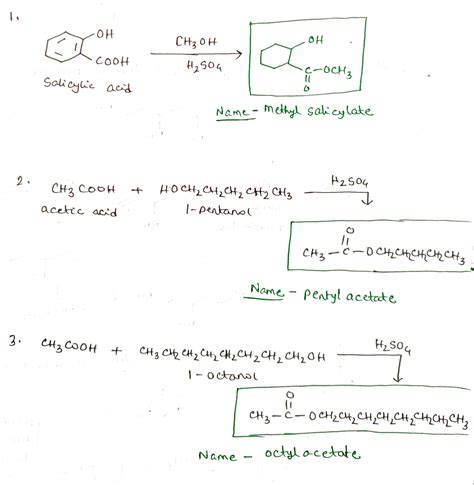 1.
OH
COOH
Salicylic acid
CH₃OH
H₂SO₄
OH
C–OCH₃
O
Name – Methyl Salicylate
2. CH₃COOH + HOCH₂CH₂CH₂CH₂CH₃ H₂SO₄
acetic acid 1-pentanol
O
CH₃–C–OCH₂CH₂CH₂CH₂CH₃
Name – pentyl acetate
3. CH₃COOH + CH₃CH₂CH₂CH₂CH₂CH₂CH₂CH₂OH H₂SO₄
1-octanol
O
CH₃–C–OCH₂CH₂CH₂CH₂CH₂CH₂CH₂CH₃
Name – octyl acetate